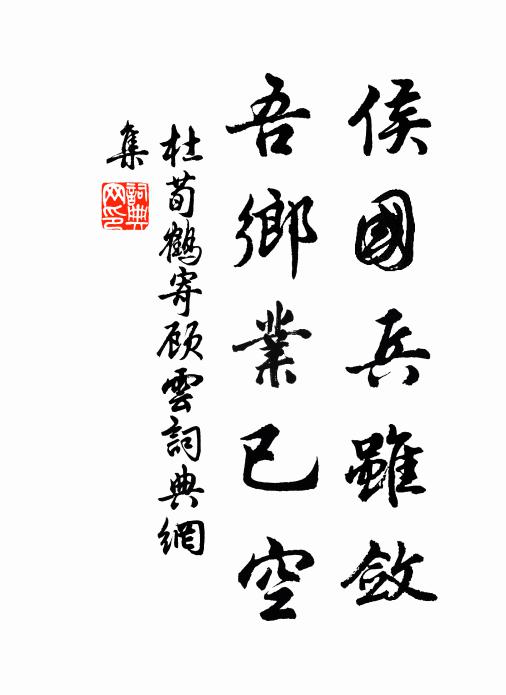 侯國兵雖斂
吾鄉業已空
杜荀鶴寄顾雲詞典網
集
詞典
网印